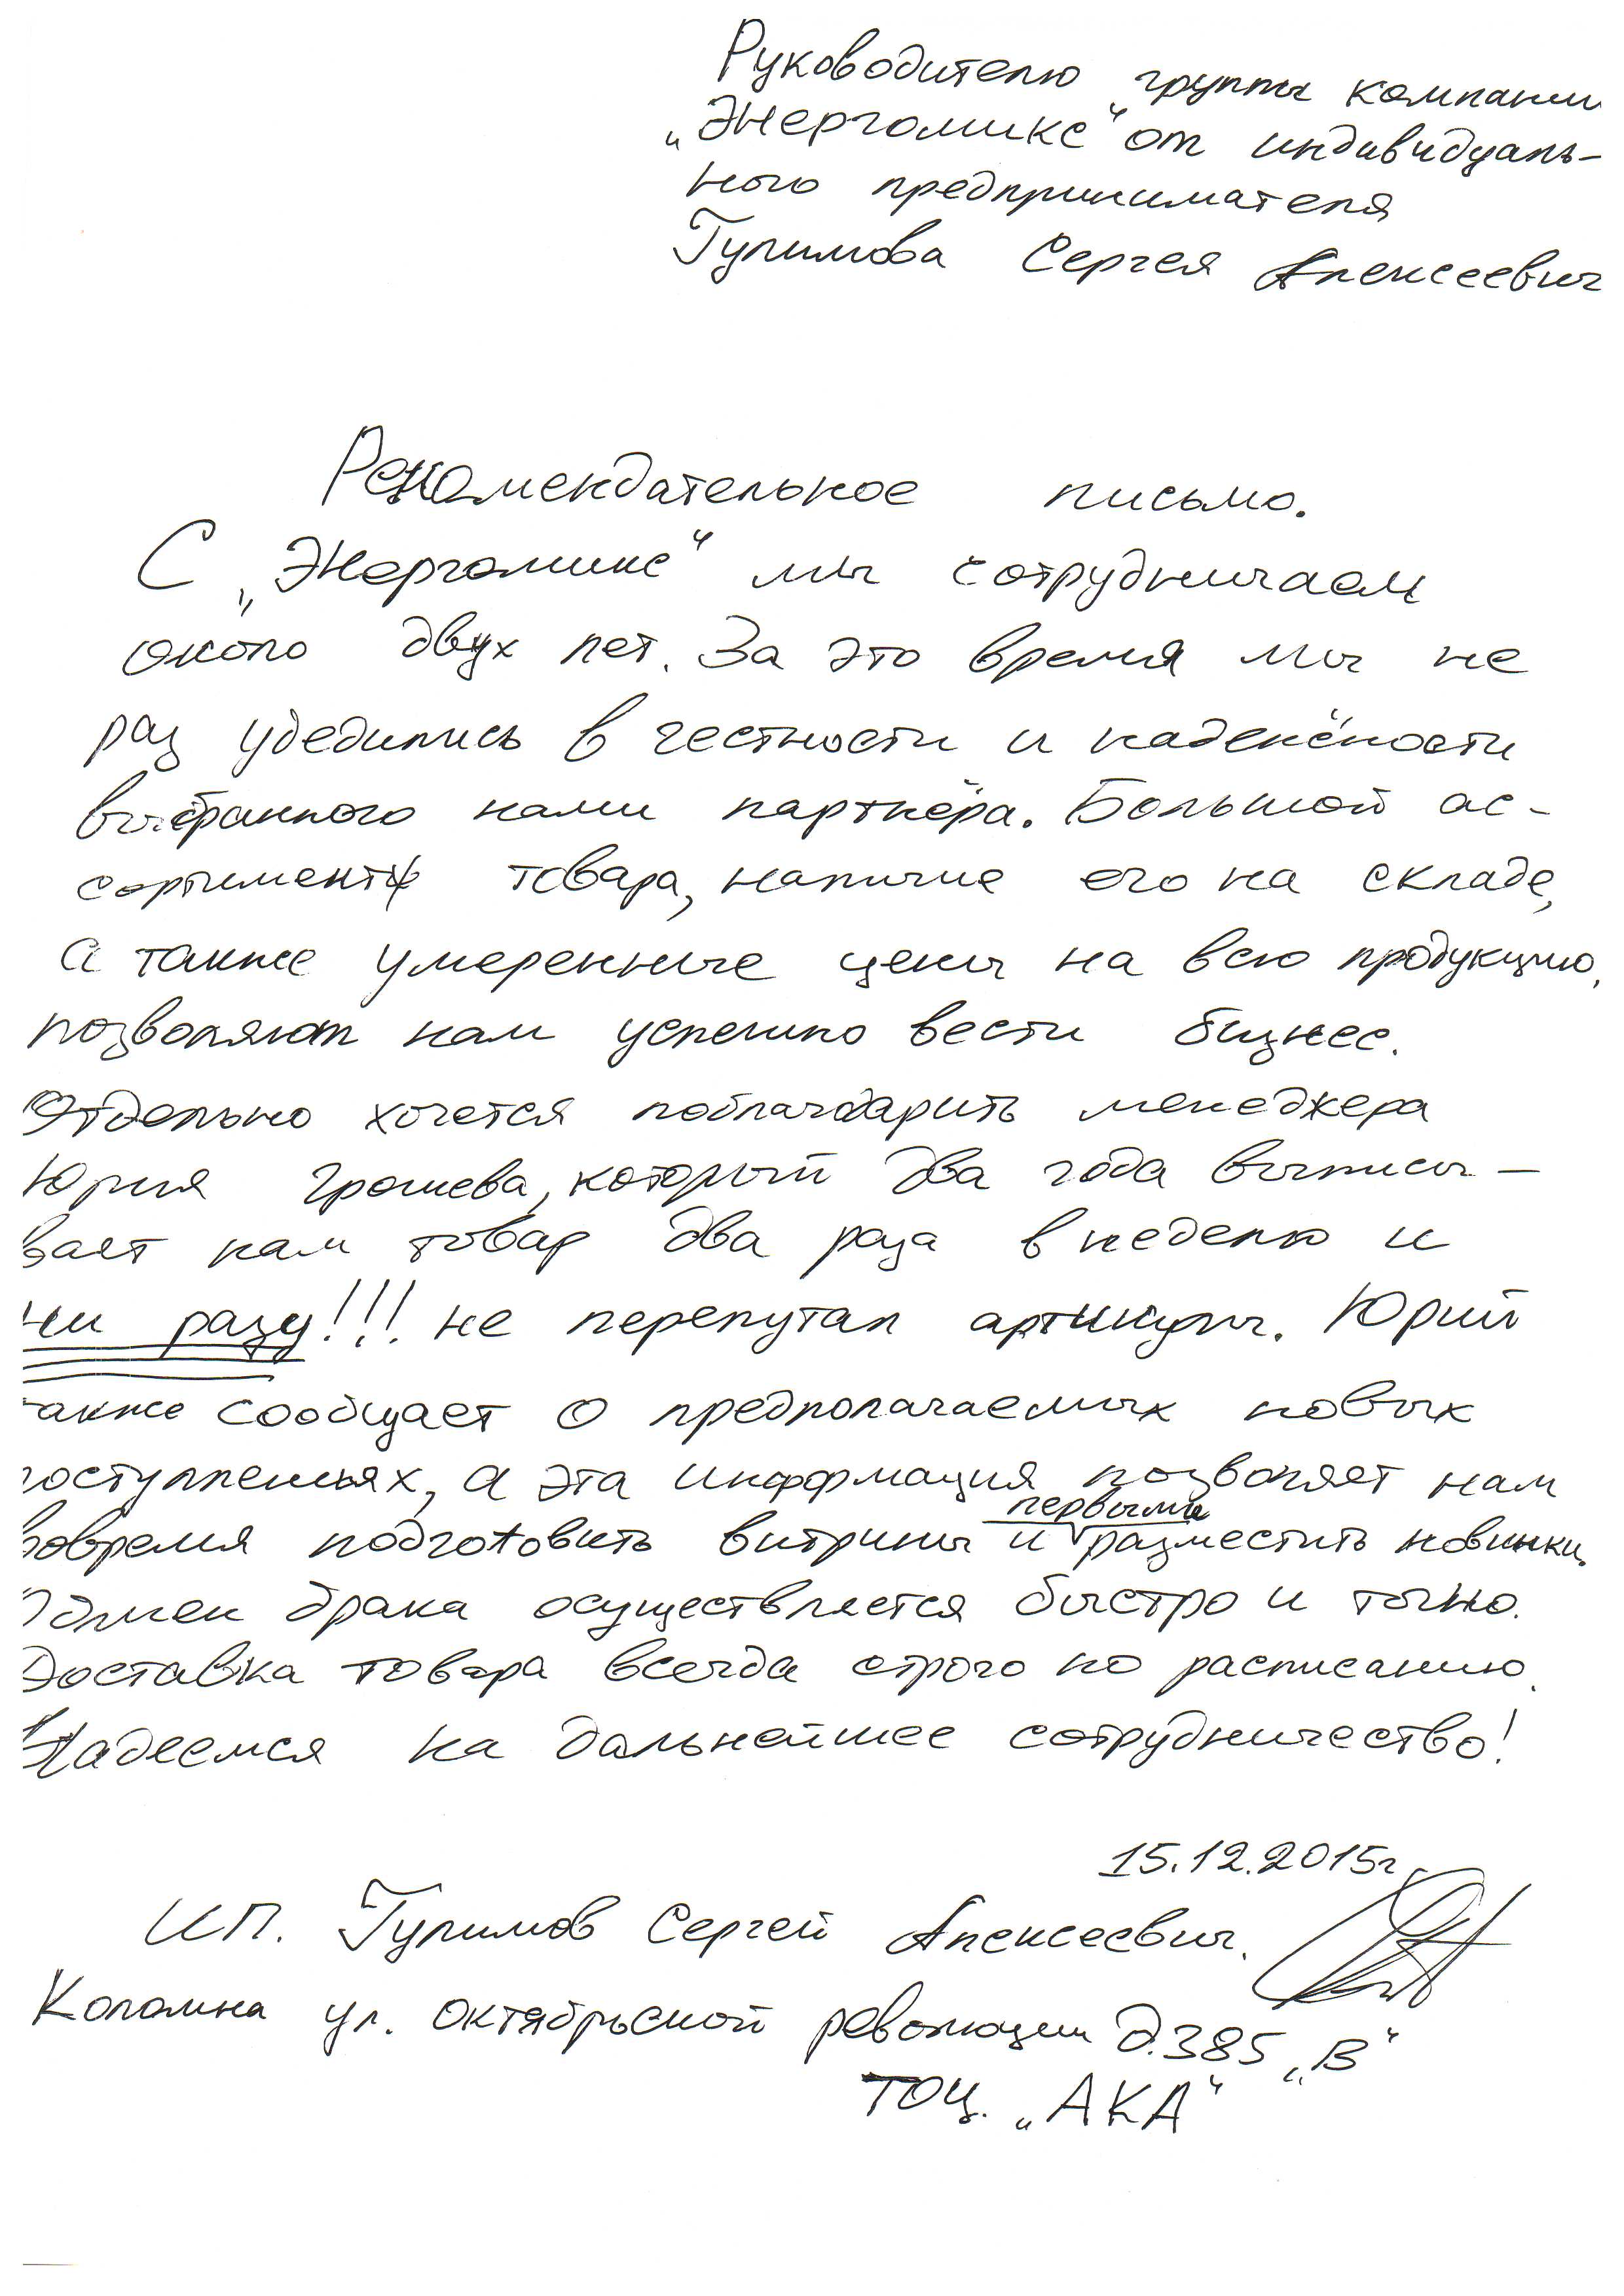 Руководителю группы компании
„Энергомикс“ от индивидуаль-
ного предпринимателя
Гулимова Сергея Алексеевич
Рекомендательное письмо.
С „Энергомикс“ мы сотрудничаем
около двух лет. За это время мы не
раз убедились в честности и надёжности
выбранного нами партнёра. Большой ас-
сортимент товара, наличие его на складе,
а также умеренные цены на всю продукцию,
позволяют нам успешно вести бизнес.
Отдельно хочется поблагодарить менеджера
Юрия Грошева, который два года выписы-
вает нам товар два раза в неделю и
ни разу!!! не перепутал артикулы. Юрий
также сообщает о предполагаемых новых
поступленьях, а эта информация позволяет нам
первыми
вовремя подготовить витрины и разместить новинки.
Обмен брака осуществляется быстро и точно.
Доставка товара всегда строго по расписанию.
Надеемся на дальнейшее сотрудничество!
15.12.2015г.
ИП. Гулимов Сергей Алексеевич.
Коломна ул. Октябрьской революции д.385 „В“
ТОЦ. „АКА“